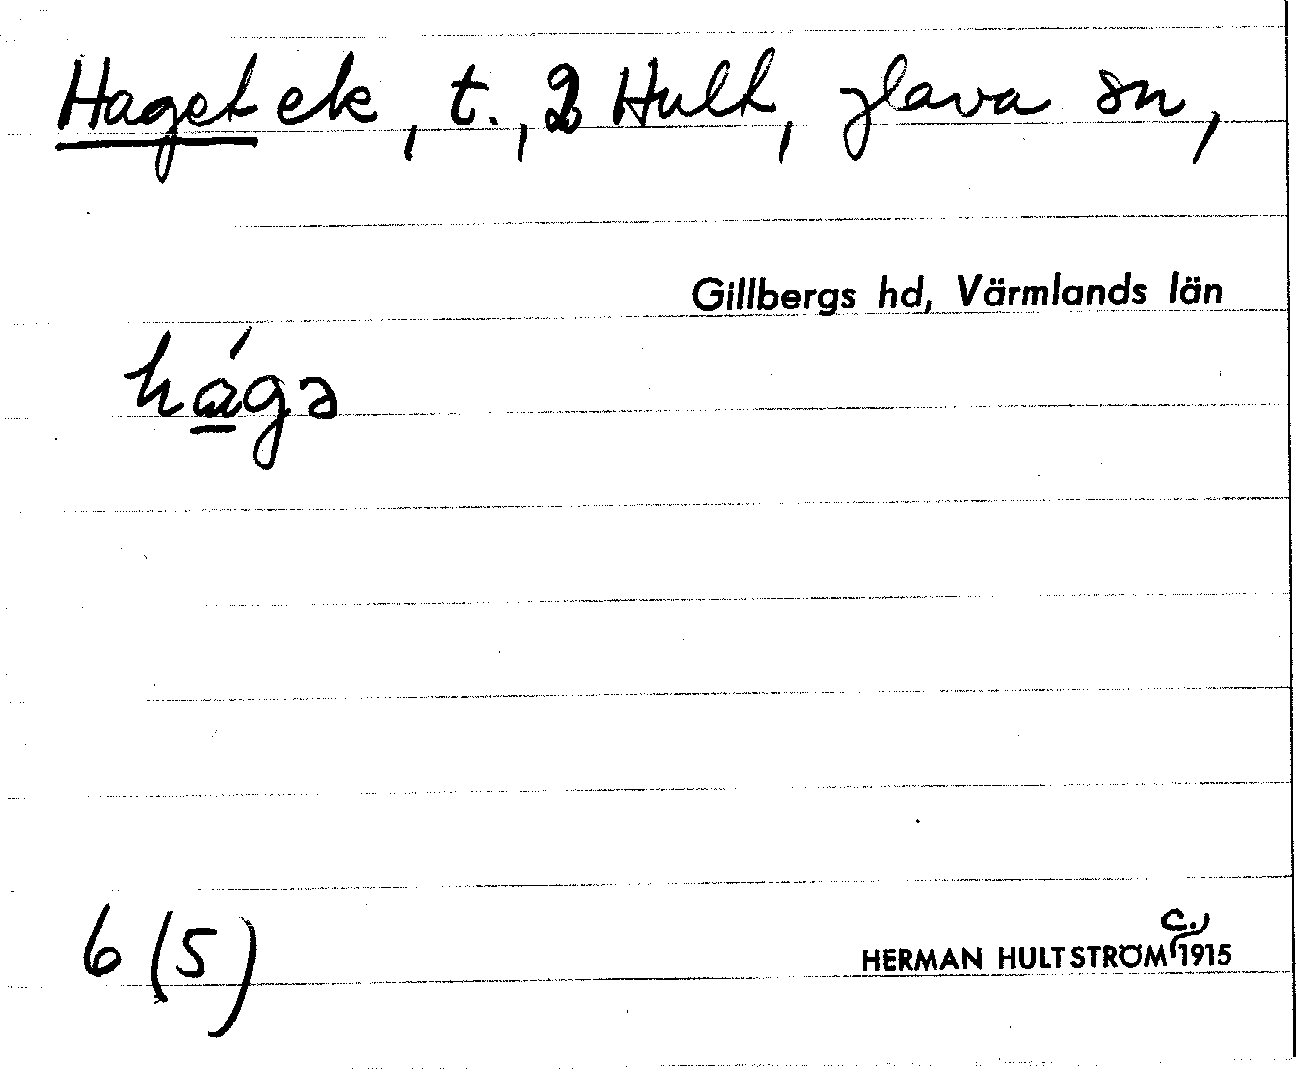 Haget ek, t., 2 Hult, Glava sn,
Gillbergs hd, Värmlands län
hága
6 (5)
HERMAN HULTSTRÖM c. 1915